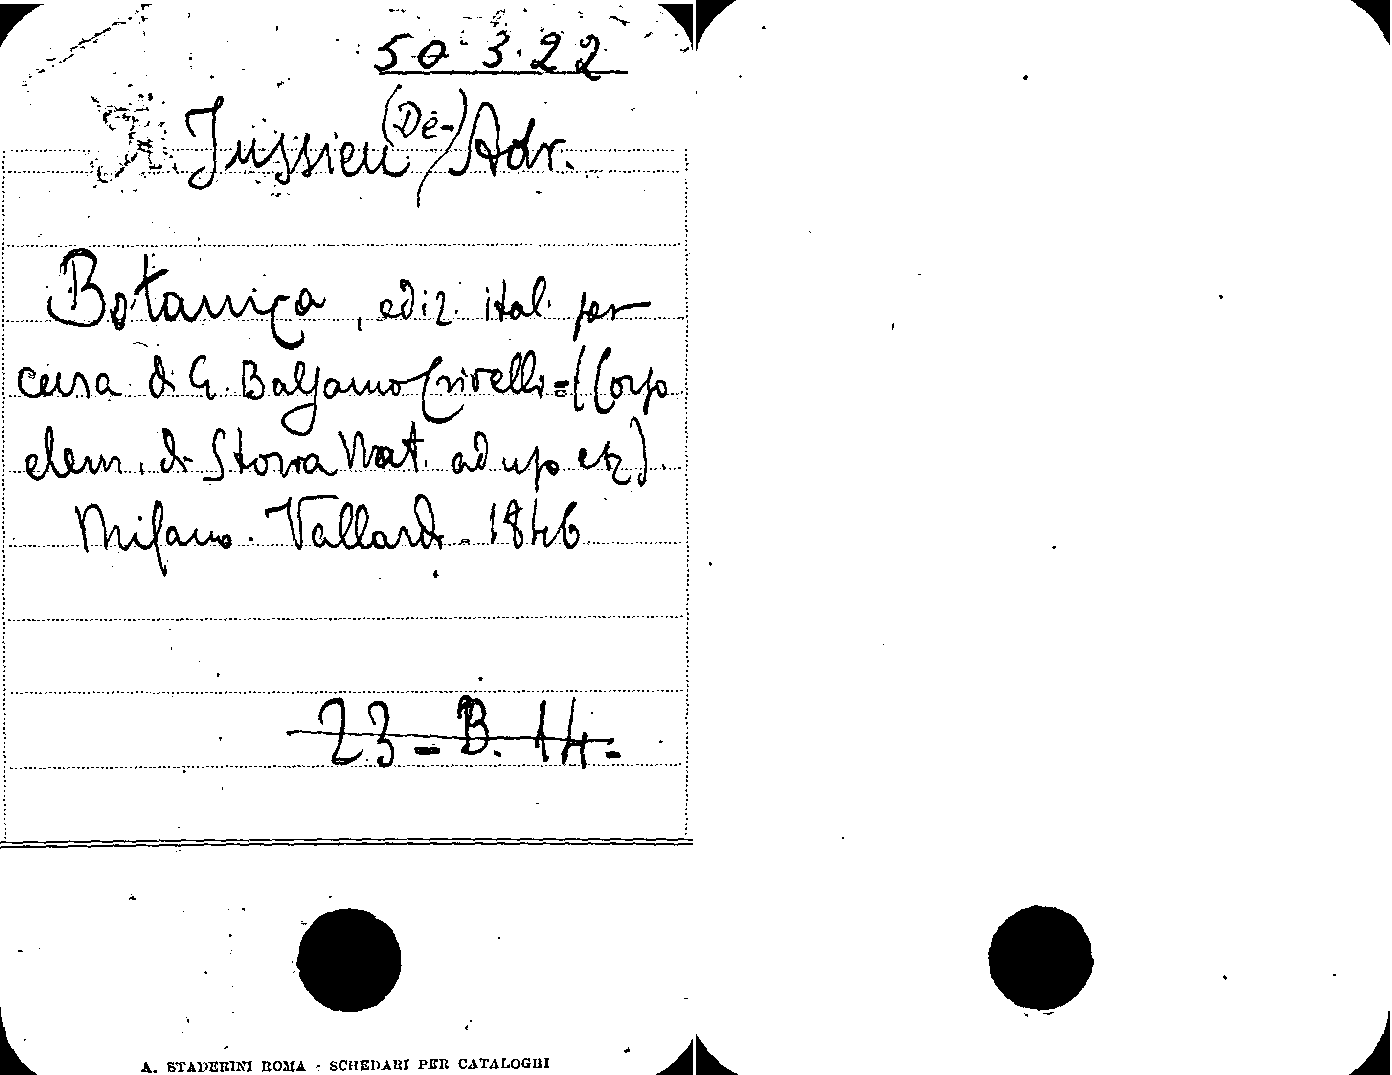 50 3.22
Jussieu (De-) Adr.
Botanica, ediz. ital. per
cura di G. Balsamo Crivelli = (Corso
elem. di Storia Nat. ad uso etz).
Milano. Vallardi - 1846
23 - B. 14 -
A. STADERINI ROMA - SCHEDARI PER CATALOGHI